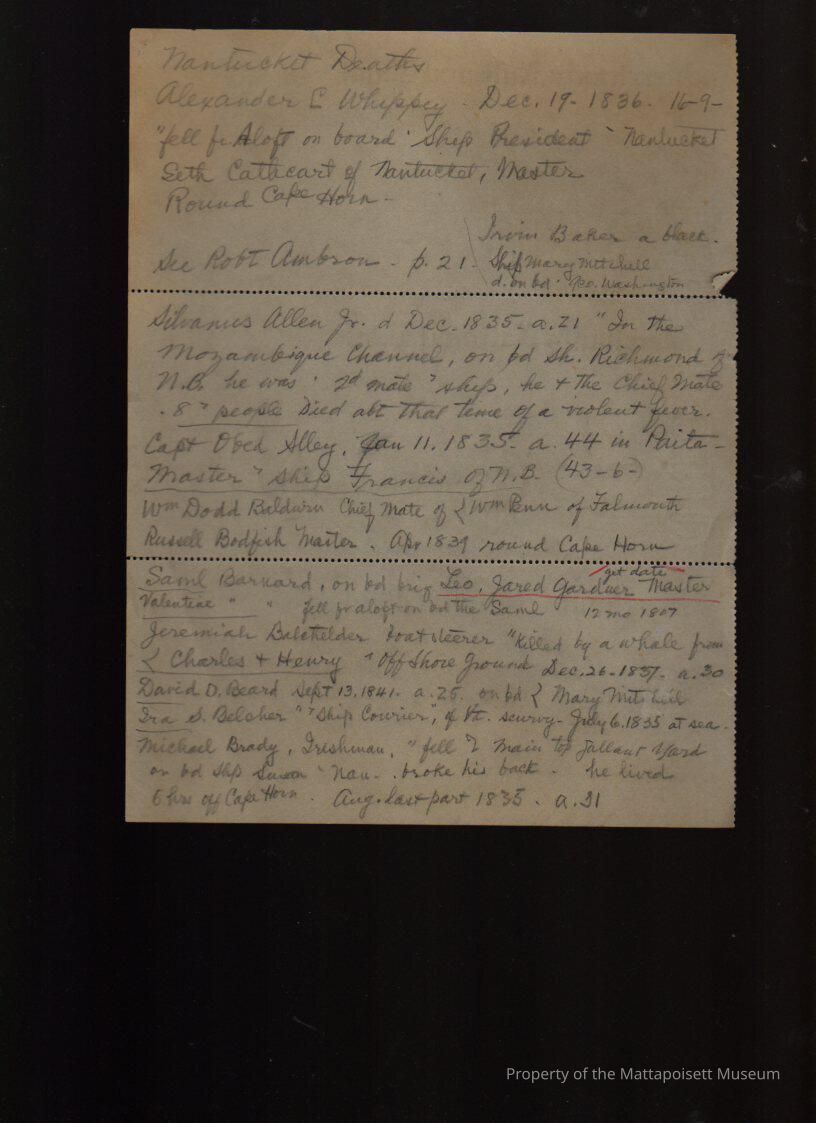 Nantucket Deaths
Alexander C Whippey - Dec. 19 - 1836. 16-9-
"fell fr Aloft on board ' Ship President ` Nantucket
Seth Cathcart of Nantucket, Master
Round Cape Horn -
Irvin Baker a black.
See Robt Ambron - p. 21 - Ship Mary Mitchell
d. on bd ' Geo. Washington
Silvanus Allen Jr. d Dec. 1835 - a. 21 "In the
Mozambique Channel, on bd Sh. Richmond of
N.B. he was ' 2d mate " ship, he + the Chief Mate
. 8 " people Died abt that time of a violent fever.
Capt Obed Alley, Jan 11. 1835 - a. 44 in Paita -
Master " ship Francis of N.B. (43-6-)
Wm Dodd Baldwin Chief Mate of { Wm Penn of Falmouth
Russell Bodfish Master. Apr 1839 round Cape Horn
get date
Saml Barnard, on bd brig Leo, Jared Gardner Master
Valentine " " fell fr aloft on bd the Saml 12 mo 1807
Jeremiah Batchelder boatsteerer "Killed by a whale from
{ Charles + Henry " Off Shore Ground Dec. 26 - 1837 - a. 30
David D. Beard Sept 13, 1841 - a. 25. on bd { Mary Mitchell
Ira S. Belcher " " Ship Courier", of Vt. scurvy - July 6. 1835 at sea.
Michael Brady, Irishman, " fell main top gallant yard
on bd Ship Susan ` Nan. . broke his back - he lived
6 hrs off Cape Horn. Aug. last part 1835 - a. 31
Property of the Mattapoisett Museum